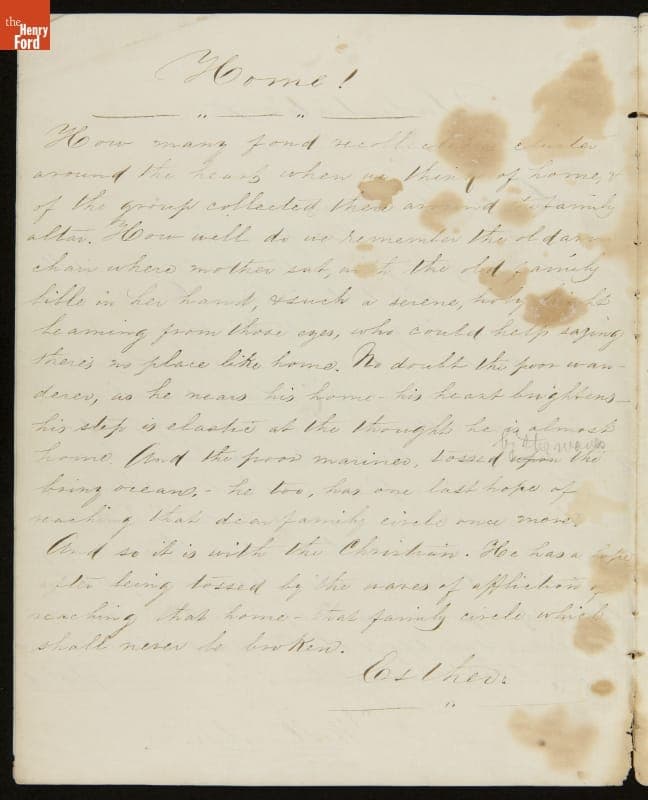 the
Henry
Ford
Home!
How many fond recollections cluster
around the heart when we think of home, &
of the group collected there around the family
altar. How well do we remember the old arm
chair where mother sat, with the old family
bible in her hand, & such a serene, holy light
beaming from those eyes, who could help saying
there's no place like home. No doubt the poor wan-
derer, as he nears his home - his heart brightens -
his step is elastic at the thought he is almost
by the waves
home. And the poor mariner, tossed upon the
briny ocean, - he too, has one last hope of
reaching that dear family circle once more.
And so it is with the Christian. He has a hope
after being tossed by the waves of affliction of
reaching that home - that family circle which
shall never be broken.
Esther.